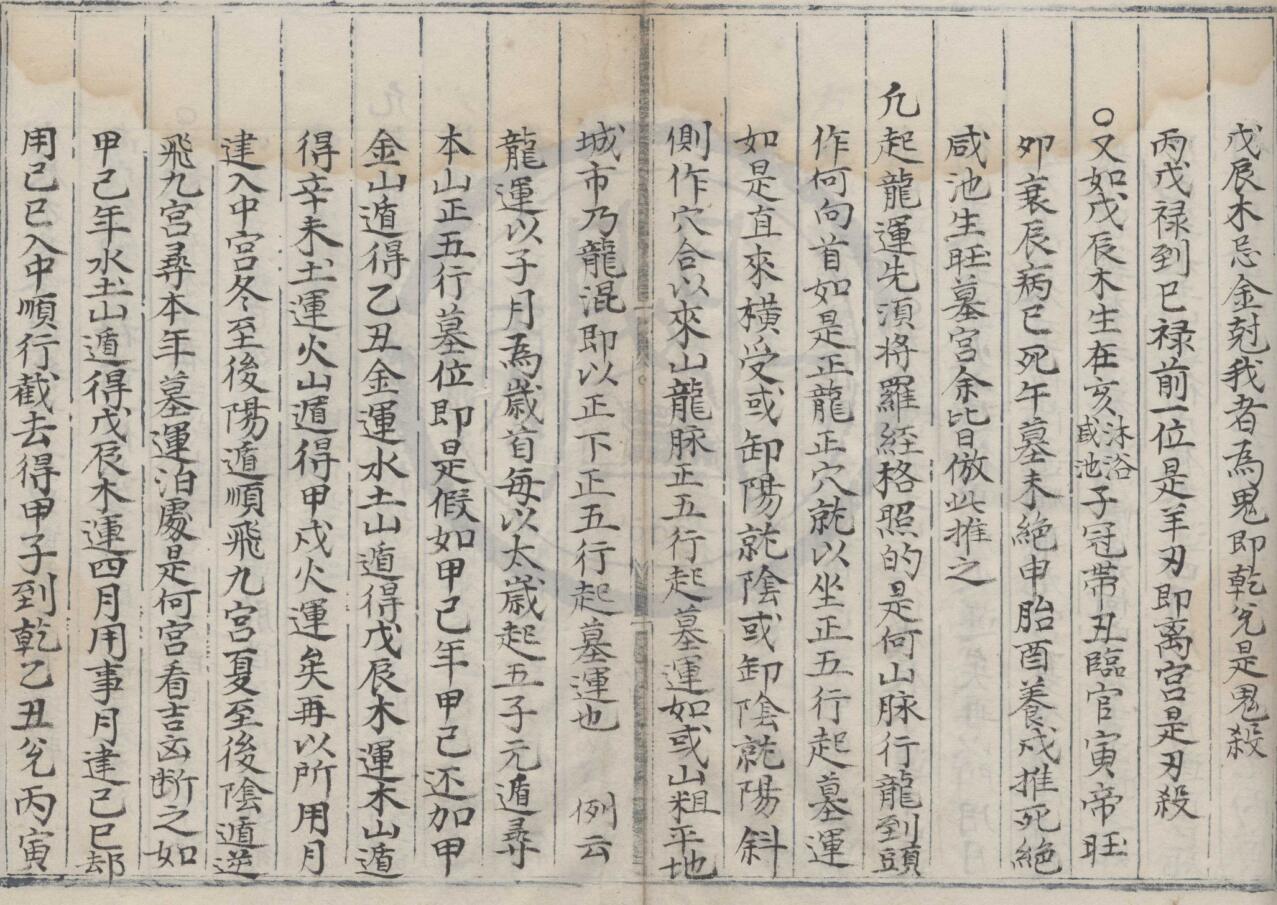 戊辰木忌金尅我者為鬼即乾兊是鬼殺
丙戊禄到巳禄前一位是羊刃即离宮是刃殺
○又如戊辰木生在亥沐浴咸池子冠帶丑臨官寅帝旺
夘衰辰病巳死午墓未絶申胎酉養戍推死絶
咸池生旺墓宮余比日倣此推之
凢起龍運先湏将羅経格照的是何山脉行龍到頭
作何向首如是正龍正穴就以坐正五行起墓運
如是直來横受或卸陽就陰或卸陰就陽斜
側作穴合以來山龍脉正五行起墓運如或山粗平地
城市乃龍混即以正下正五行起墓運也　例云
龍運以子月為歳首毎以太歳起五子元遁尋
本山正五行墓位即是假如甲己年甲己还加甲
金山遁得乙丑金運水土山遁得戊辰木運木山遁
得辛未土運火山遁得甲戍火運矣再以所用月
建入中宮冬至後陽遁順飛九宮夏至後陰遁逆
飛九宮尋本年墓運泊處是何宮看吉凶断之如
甲己年水土山遁得戊辰木運四月用事月建己巳却
用己巳入中順行截去得甲子到乾乙丑兊丙寅